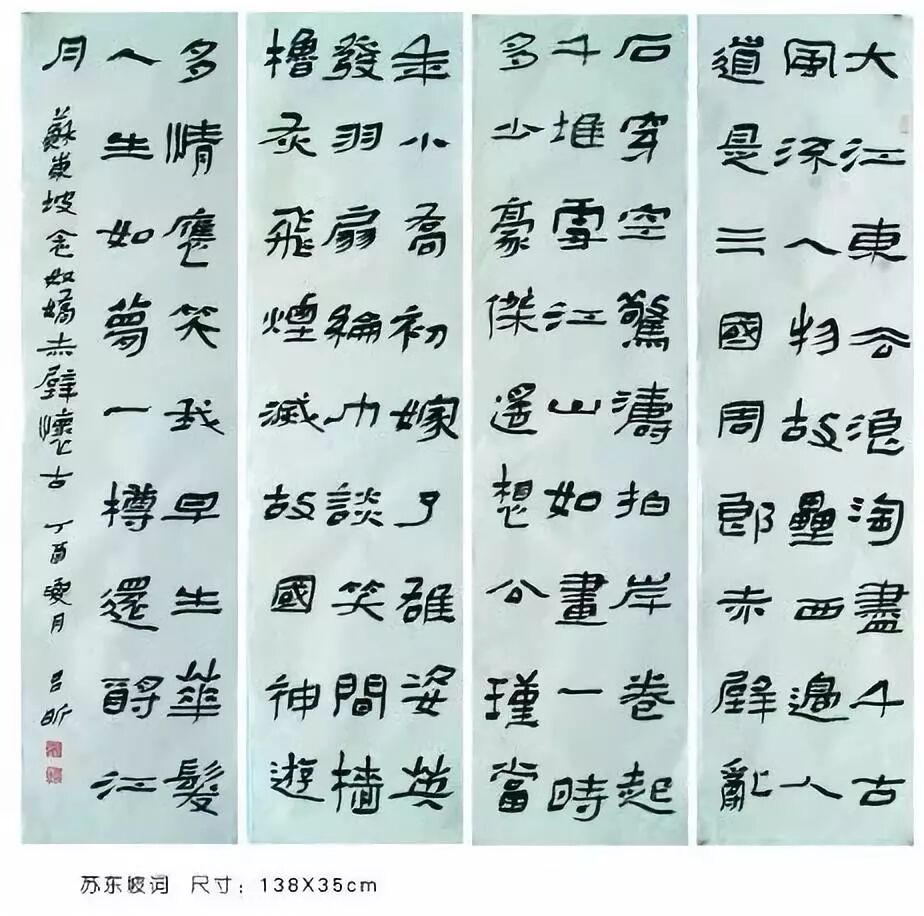 大江東去浪淘盡千古
風流人物故壘西邊人
道是三國周郎赤壁亂
石穿空驚濤拍岸卷起
千堆雪江山如畫一時
多少豪傑遥想公瑾當
年小喬初嫁了雄姿英
發羽扇綸巾談笑間檣
櫓灰飛煙滅故國神遊
多情應笑我早生華髮
人生如夢一樽還酹江
月
蘇東坡念奴嬌赤壁懷古 丁酉夏月 吕昕
苏东坡词 尺寸：138X35cm